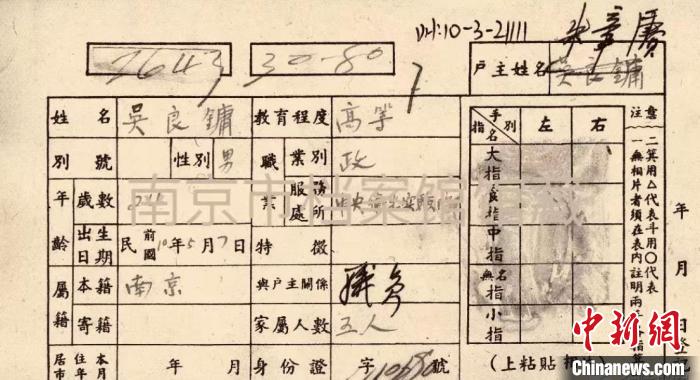 叫:10-3-21111
7643
30-80
戶主姓名 吴良鏞
姓名 吳良鏞 教育程度 高等
別號 性別 男 職業 業別 政
服務處所
年齡 歲數
出生日期 民國前 10年5月7日 特徵
屬籍 本籍 南京 與戶主關係 職員
寄籍 家屬人數 五人
居住本市年月 年 月 身份證 字 號
指名 手別 左 右
大指
食指
中指
無名指
小指
(上粘貼
注意
一無相片者須在表內註明兩手各指箕
二箕用△代表斗用〇代表
年 月 日登記
南京市档案馆馆藏
中新网
Chinanews.com